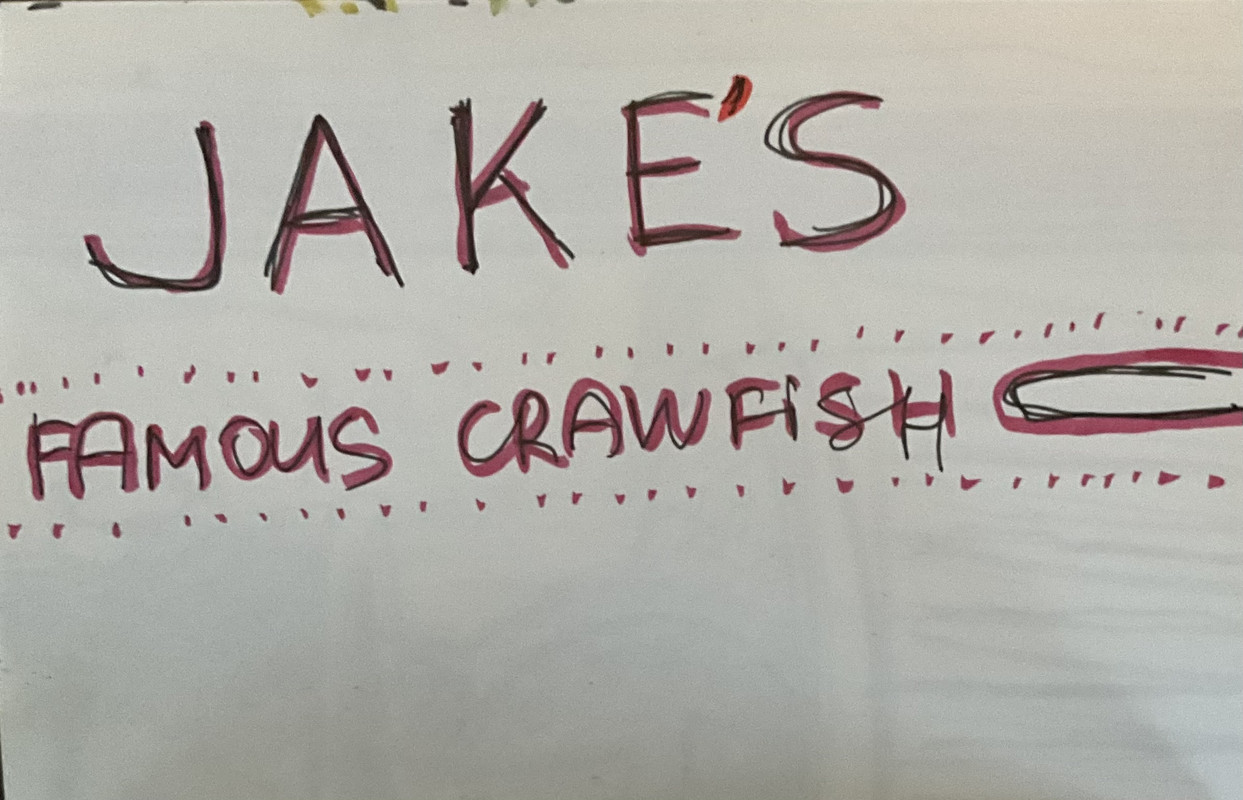 JAKE'S
FAMOUS CRAWFISH